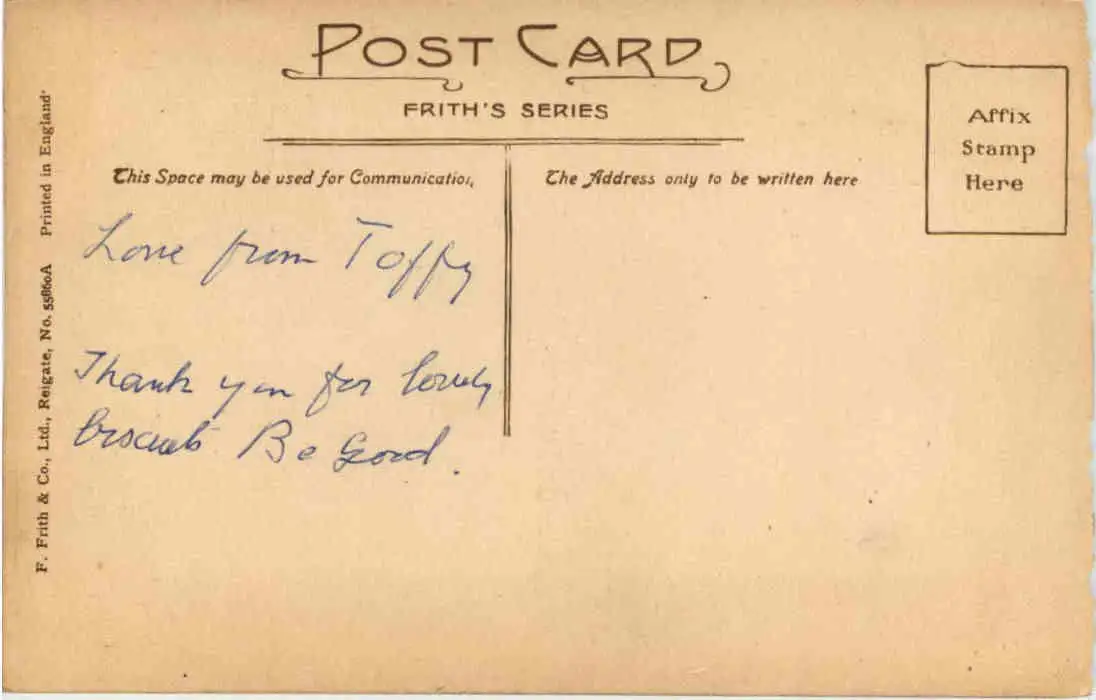 POST CARD
FRITH'S SERIES
This Space may be used for Communication,
The Address only to be written here
Affix
Stamp
Here
Love from Toffy
Thank you for lovely
biscuits Be Good.
F. Frith & Co., Ltd., Reigate, No. 55860A Printed in England